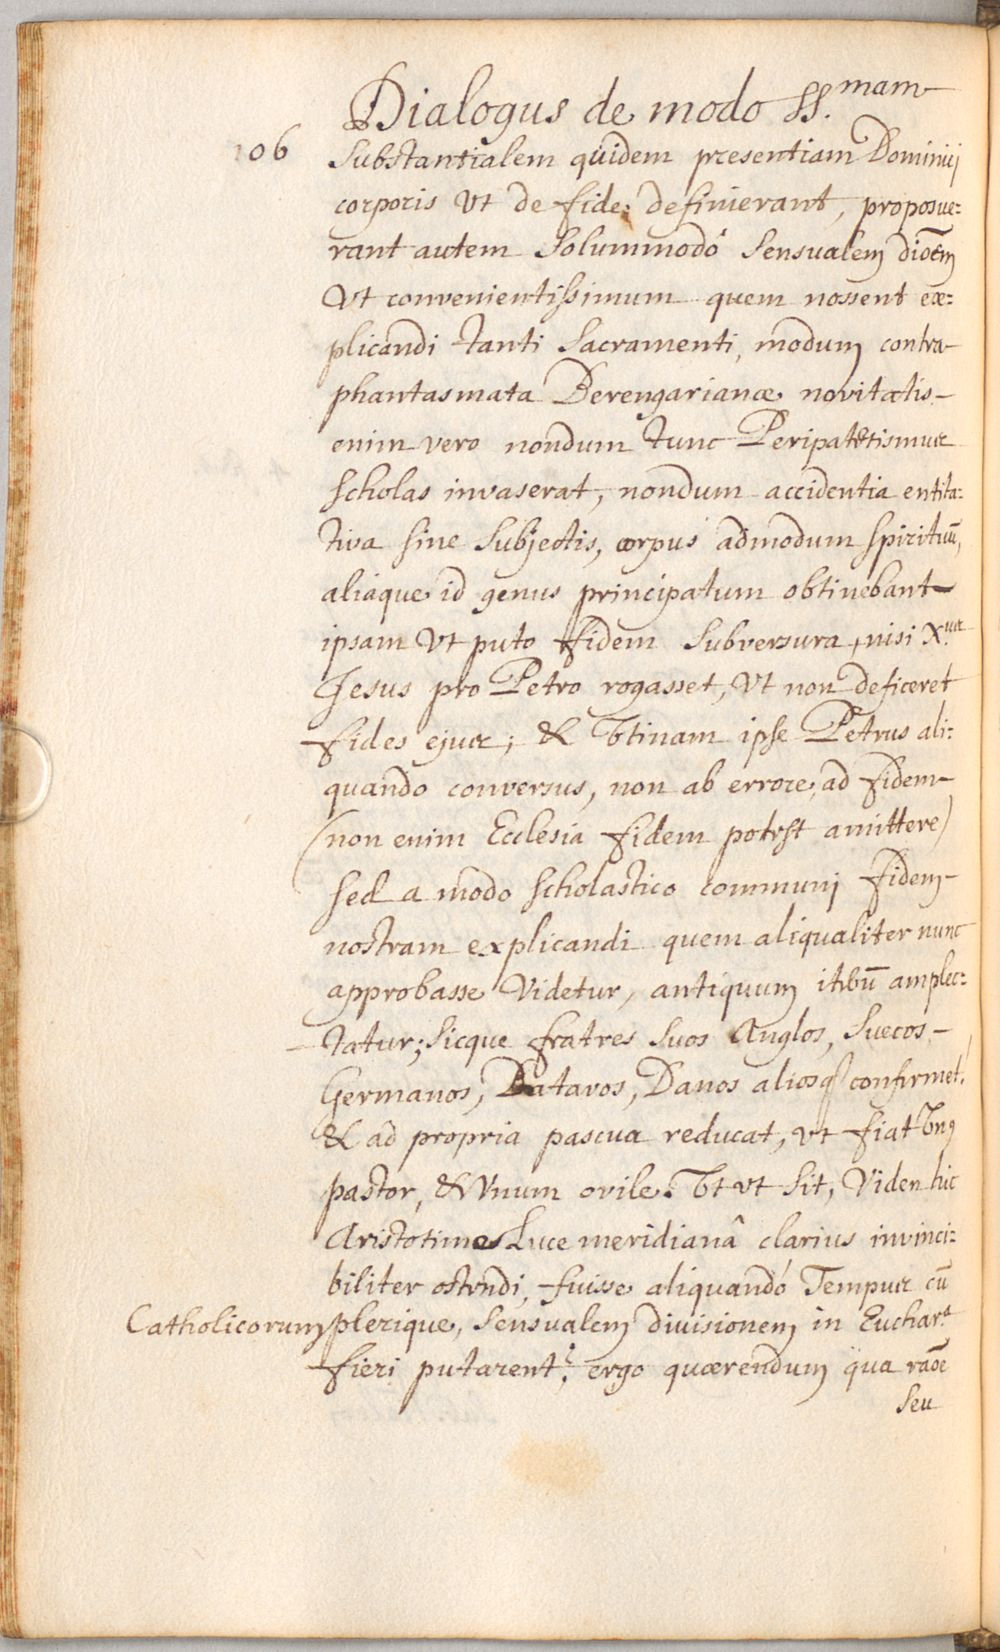 Dialogus de modo SS.mam
106
Substantialem quidem presentiam Dominij
corporis Vt de fide; definierant, proposue:
rant autem Solummodó Sensualem diōēm
Vt convenientissimum quem nossent ex:
plicandi tanti Sacramenti, modum contra
phantasmata Berengarianæ novitatis
enim vero nondum tunc Peripatetismus
scholas invaserat, nondum accidentia entita:
tiva sine Subjectis, corpus admodum spirituū,
aliáque id genus principatum obtinebant
ipsam Vt puto fidem Subversura, nisi X.us
Jesus pro Petro rogasset, Vt non deficeret
fides ejus; & Vtinam ipse Petrus ali:
quando conversus, non ab errore, ad fidem
(non enim Ecclesia fidem potest amittere)
sed a modo scholastico communi fidem
nostram explicandi quem aliqualiter nunc
approbasse Videtur, antiquum itibū amplec:
tatur; sicque fratres suos Anglos, Suecos
Germanos, Batavos, Danos aliosq confirmet,
& ad propria pascua reducat, vt fiat Vnq
pastor, & Vnum ovile. Vt vt sit, Viden hic
Aristotimes Luce meridianâ clarius invinci:
biliter ostendi, fuisse aliquandó Tempus cū
Catholicorum plerique, Sensualem divisionem in Euchar.t
fieri putarent? ergo quærendum qua raōē
seu